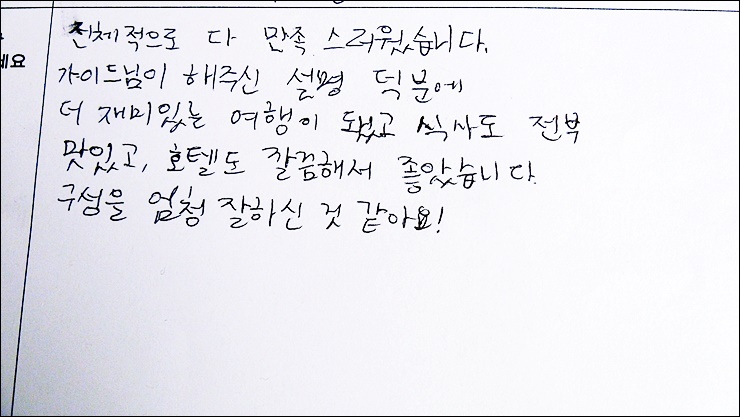 전체적으로 다 만족 스러웠습니다.
가이드님이 해주신 설명 덕분에
더 재미있는 여행이 됐고 식사도 전부
맛있고, 호텔도 깔끔해서 좋았습니다.
구성을 엄청 잘하신 것 같아요!
세요